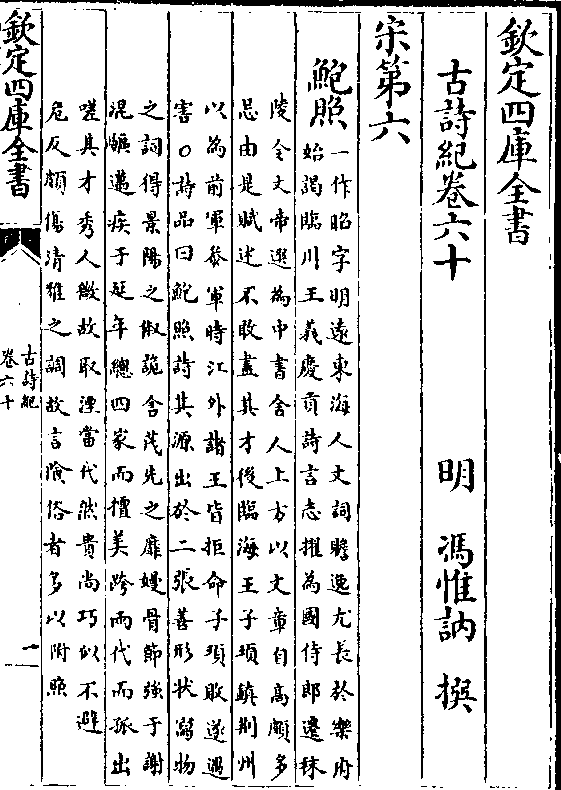 欽定四庫全書
古詩紀卷六十
明 馮惟訥 撰
宋第六
鮑照
一作昭字明遠東海人文詞贍逸尤長於樂府
始謁臨川王義慶貢詩言志擢為國侍郎遷秣
陵令文帝選為中書舍人上方以文章自高頗多
忌由是賦述不敢盡其才後臨海王子頊鎮荆州
以為前軍參軍時江外諸王皆拒命子頊敗遂遇
害○詩品曰鮑照詩其源出於二張善形狀寫物
之詞得景陽之俶詭含茂先之靡嫚骨節強于謝
混驅邁疾于延年總四家而擅美跨兩代而孤出
嗟其才秀人微故取湮當代然貴尚巧似不避
危仄頗傷清雅之調故言險俗者多以附照
欽定四庫全書
古詩紀
卷六十
一